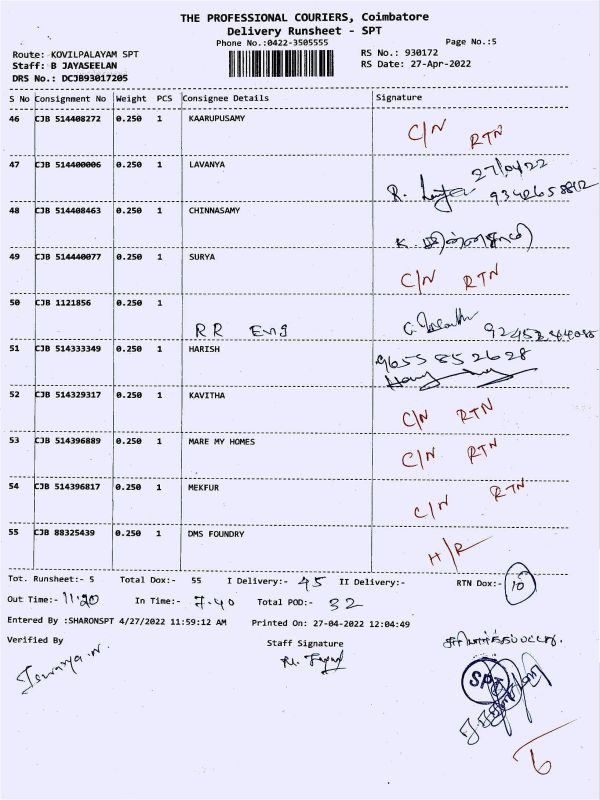 THE PROFESSIONAL COURIERS, Coimbatore
Delivery Runsheet - SPT
Phone No.:0422-3505555 Page No.:5
Route: KOVILPALAYAM SPT RS No.: 930172
Staff: B JAYASEELAN RS Date: 27-Apr-2022
DRS No.: DCJB93017205
S No Consignment No Weight PCS Consignee Details Signature
46 CJB 514408272 0.250 1 KAARUPUSAMY C/N RTN
27/04/22
47 CJB 514400006 0.250 1 LAVANYA R.
48 CJB 514408463 0.250 1 CHINNASAMY K.
49 CJB 514440077 0.250 1 SURYA C/N RTN
50 CJB 1121856 0.250 1
RR Eng
51 CJB 514333349 0.250 1 HARISH 9655852628
52 CJB 514329317 0.250 1 KAVITHA C/N RTN
53 CJB 514396889 0.250 1 MARE MY HOMES C/N RTN
54 CJB 514396817 0.250 1 MEKFUR C/N RTN
55 CJB 88325439 0.250 1 DMS FOUNDRY H/R
Tot. Runsheet:- 5 Total Dox:- 55 I Delivery:- 45 II Delivery:- RTN Dox:- 10
Out Time:- 11:20 In Time:- 7.40 Total POD:- 32
Entered By :SHARONSPT 4/27/2022 11:59:12 AM Printed On: 27-04-2022 12:04:49
Verified By Staff Signature
SPT